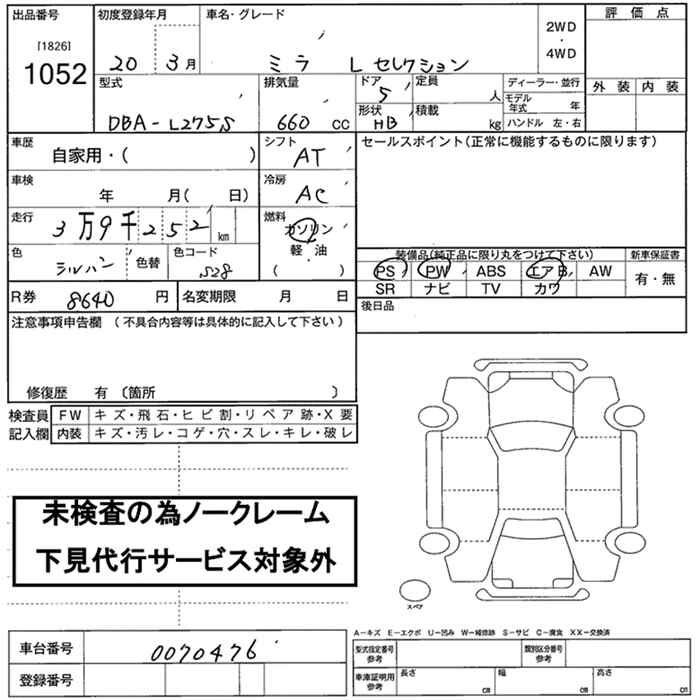 出品番号 初度登録年月 車名・グレード 2WD・4WD 評価点
[1826]
1052 20 3月 ミラ L セレクション
型式 排気量 ドア 定員 ディーラー・並行 外装 内装
DBA-L275S 660 CC 5 人 モデル年式 年
形状 積載
HB kg ハンドル 左・右
車歴 シフト セールスポイント(正常に機能するものに限ります)
自家用・( ) AT
車検 冷房
年 月( 日) AC
走行 燃料
3万9千252 km ガソリン
軽・油
( )
色 色替 色コード 装備品(純正品に限り丸をつけて下さい) 新車保証書
シルバー S28 PS PW ABS エアB AW 有・無
SR ナビ TV カワ
R券 8640 円 名変期限 月 日 後日品
注意事項申告欄 (不具合内容等は具体的に記入して下さい)
修復歴 有 (箇所 )
検査員 FW キズ・飛石・ヒビ割・リペア跡・X要
記入欄 内装 キズ・汚レ・コゲ・穴・スレ・キレ・破レ
未検査の為ノークレーム
下見代行サービス対象外
スペア
A-キズ E-エクボ U-凹み W-補修跡 S-サビ C-腐食 XX-交換済
車台番号 0070476 型式指定番号 参考 類別区分番号 参考
登録番号 車庫証明用 参考 長さ cm 幅 cm 高さ cm